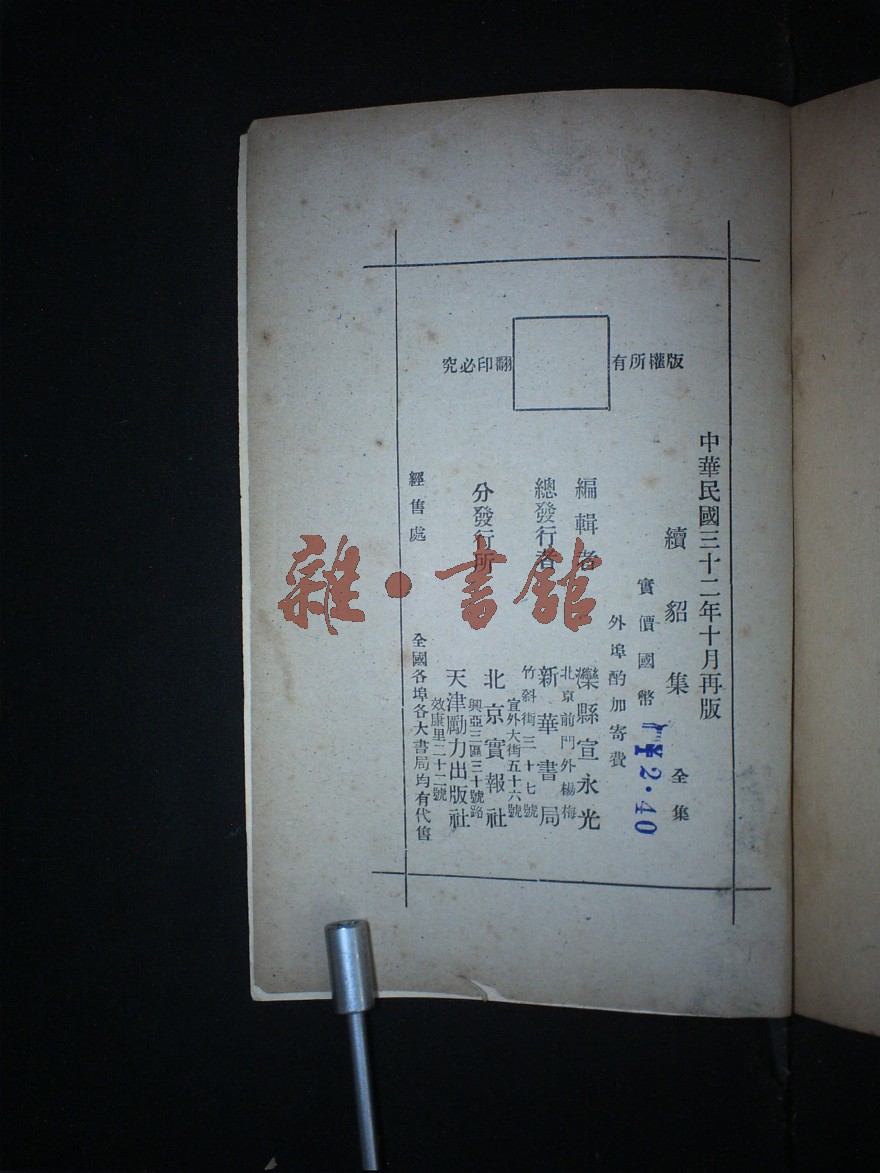 版權所有
翻印必究
中華民國三十二年十月再版
續貂集 全集
實價國幣 ¥2.40
外埠酌加寄費
編輯者 灤縣宣永光
北京前門外楊梅
竹斜街三十七號
總發行者 新華書局
宣外大街五十六號
分發行所 北京實報社
興亞三區三十號路
效康里二十二號
天津勵力出版社
經售處 全國各埠各大書局均有代售
雜·書館